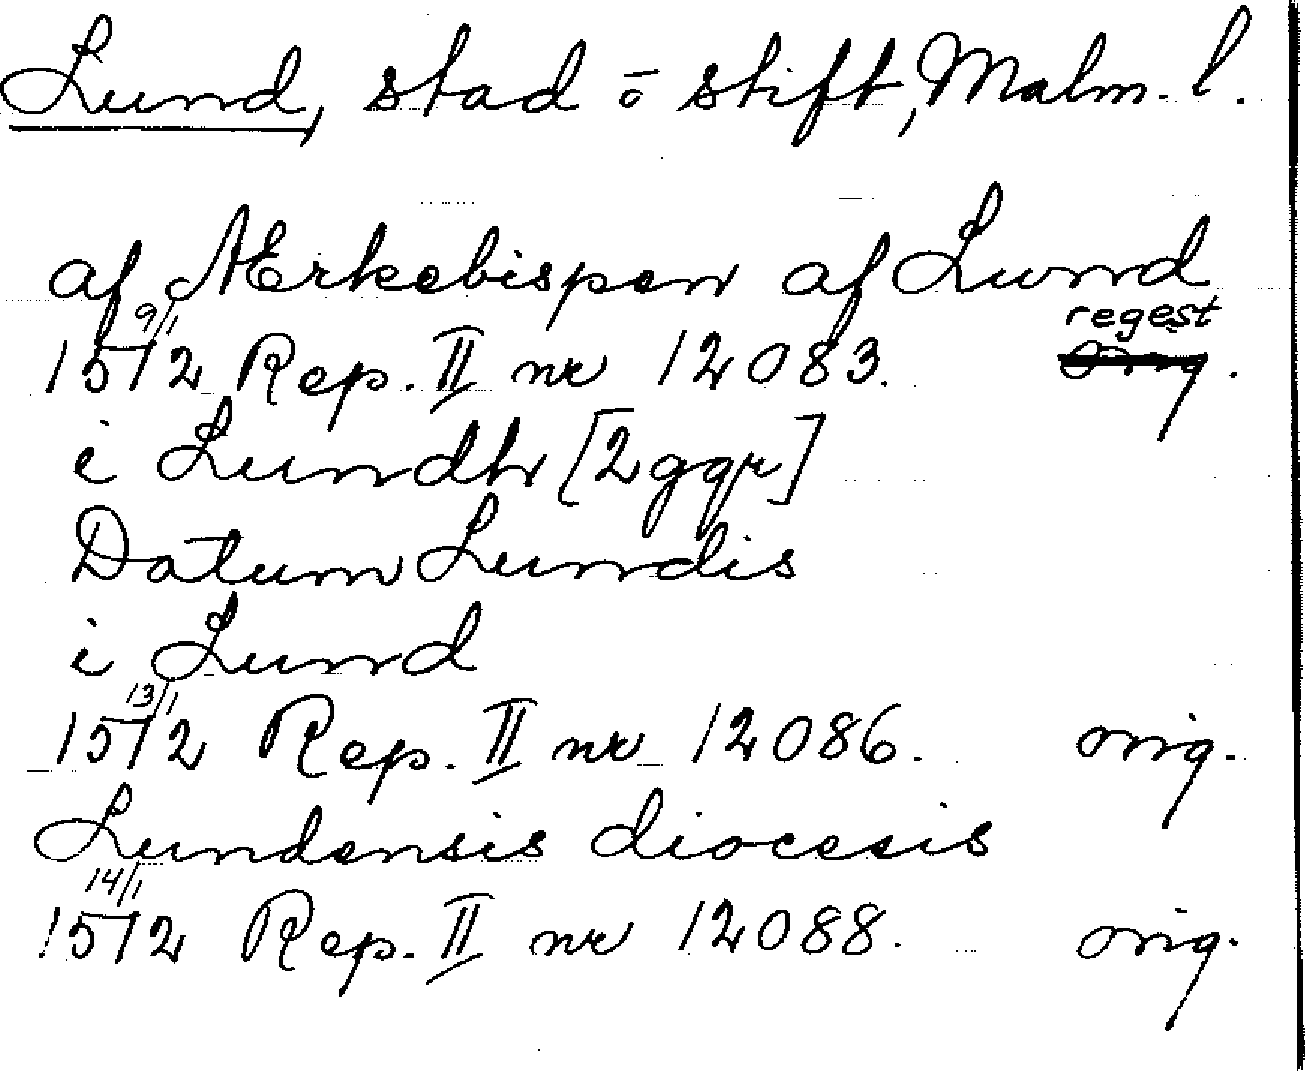 Lund, stad o stift, Malm. l.
af Ærkebispen af Lund
9/1 regest
1512 Rep. II nr 12083. orig.
i Lundh [2 ggr]
Datum Lundis
i Lund
13/1
1512 Rep. II nr 12086. orig.
Lundensis diocesis
14/1
1512 Rep. II nr 12088. orig.